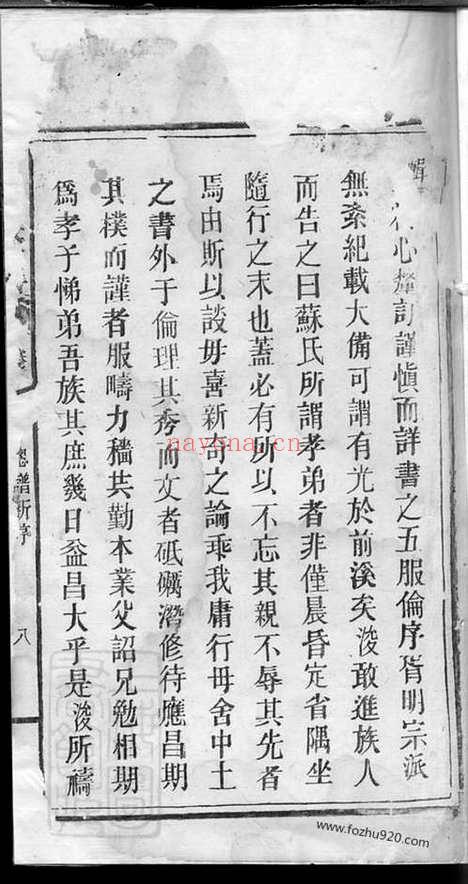 心釐訂謹慎而詳書之五服倫序胥明宗派
無紊紀載大備可謂有光於前溪矣浚敢進族人
而告之曰蘇氏所謂孝弟者非僅晨昏定省隅坐
隨行之末也蓋必有所以不忘其親不辱其先者
焉由斯以談毋喜新奇之論乖我庸行毋舍中土
之書外于倫理其秀而文者砥礪潛修待應昌期
其樸而謹者服疇力穡共勤本業父詔兄勉相期
為孝子悌弟吾族其庶幾日益昌大乎是浚所禱
總譜新序
八
nayona.cn
www.fozhu920.com